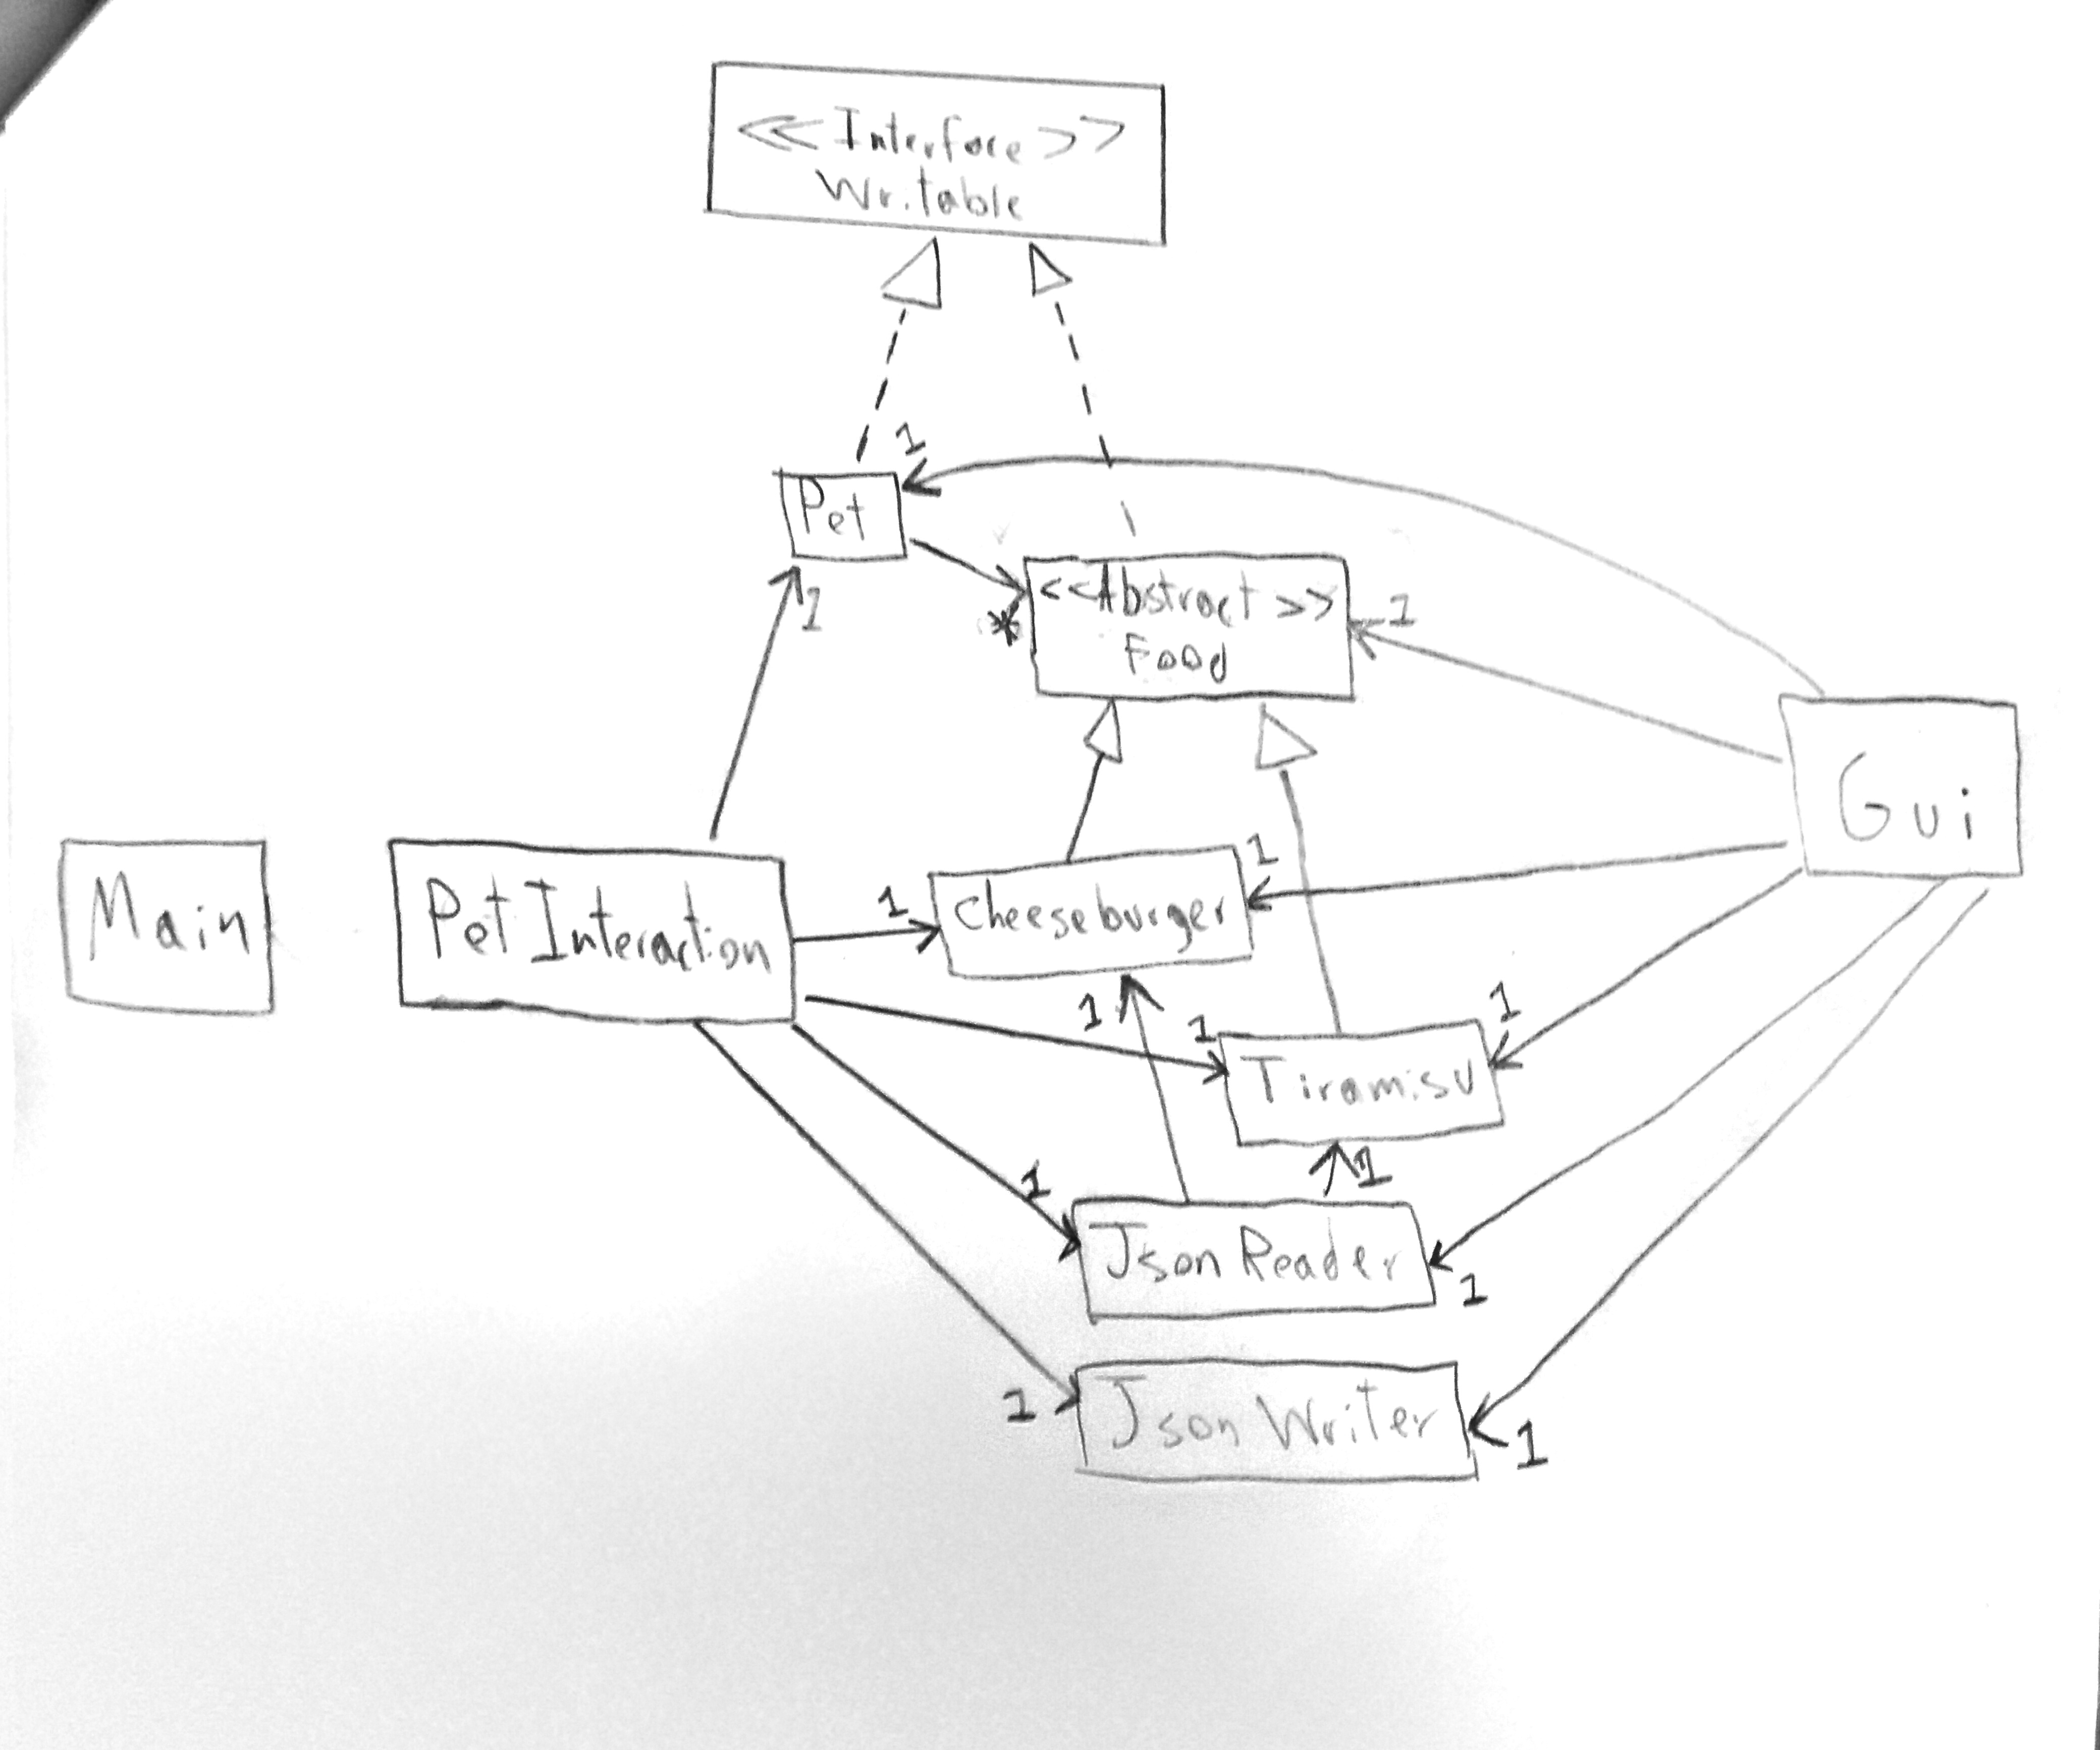 <<Interface>>
Writable
1
Pet
1
<<Abstract>>
Food
*
1
Gui
Main
Pet Interaction
1
Cheeseburger
1
1
1
Tiramisu
1
1
1
Json Reader
1
1
Json Writer
1